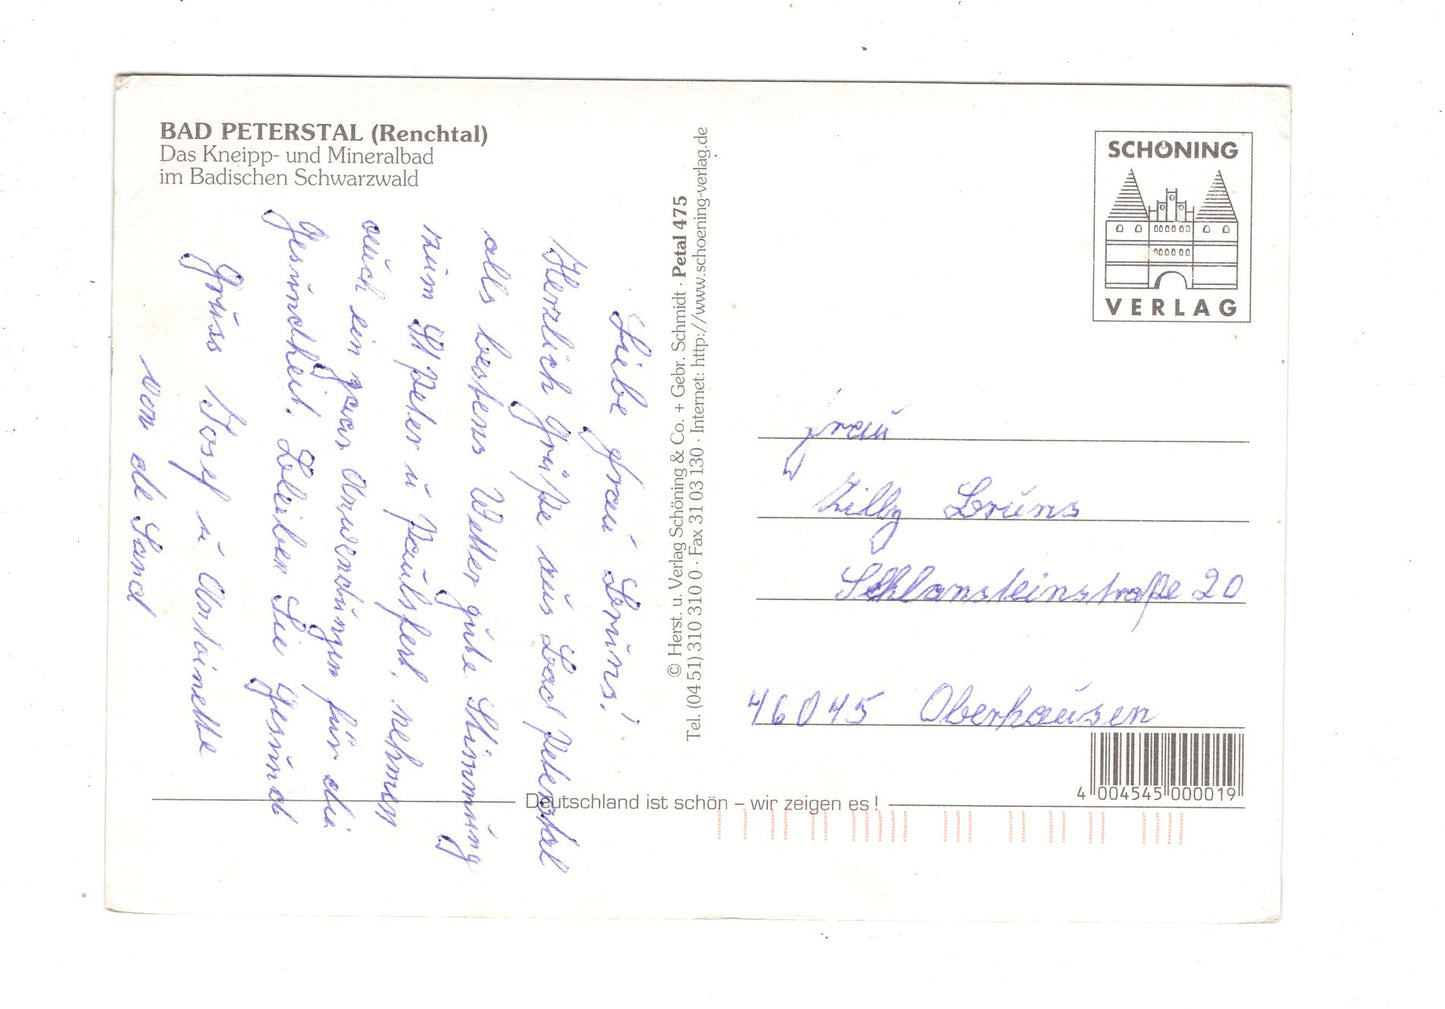 BAD PETERSTAL (Renchtal)
Das Kneipp- und Mineralbad
im Badischen Schwarzwald
Liebe Frau Bruns!
Herzlich Grüße aus Bad Peterstal
alls bestens Wetter gute Stimmung
zum St Peter u Paulsfest, nehmen
auch ein paar Anwendungen für die
Gesundheit. Bleiben Sie Gesund
Gruss Josef u Antoinette
von de Sand
© Herst. u. Verlag Schöning & Co. + Gebr. Schmidt · Petal 475
Tel. (04 51) 310 310 0 · Fax 31 03 130 · Internet: http://www.schoening-verlag.de
SCHÖNING
VERLAG
Frau
Zilly Bruns
Schlamsteinstraße 20
46045 Oberhausen
4 004545 000019
Deutschland ist schön – wir zeigen es !